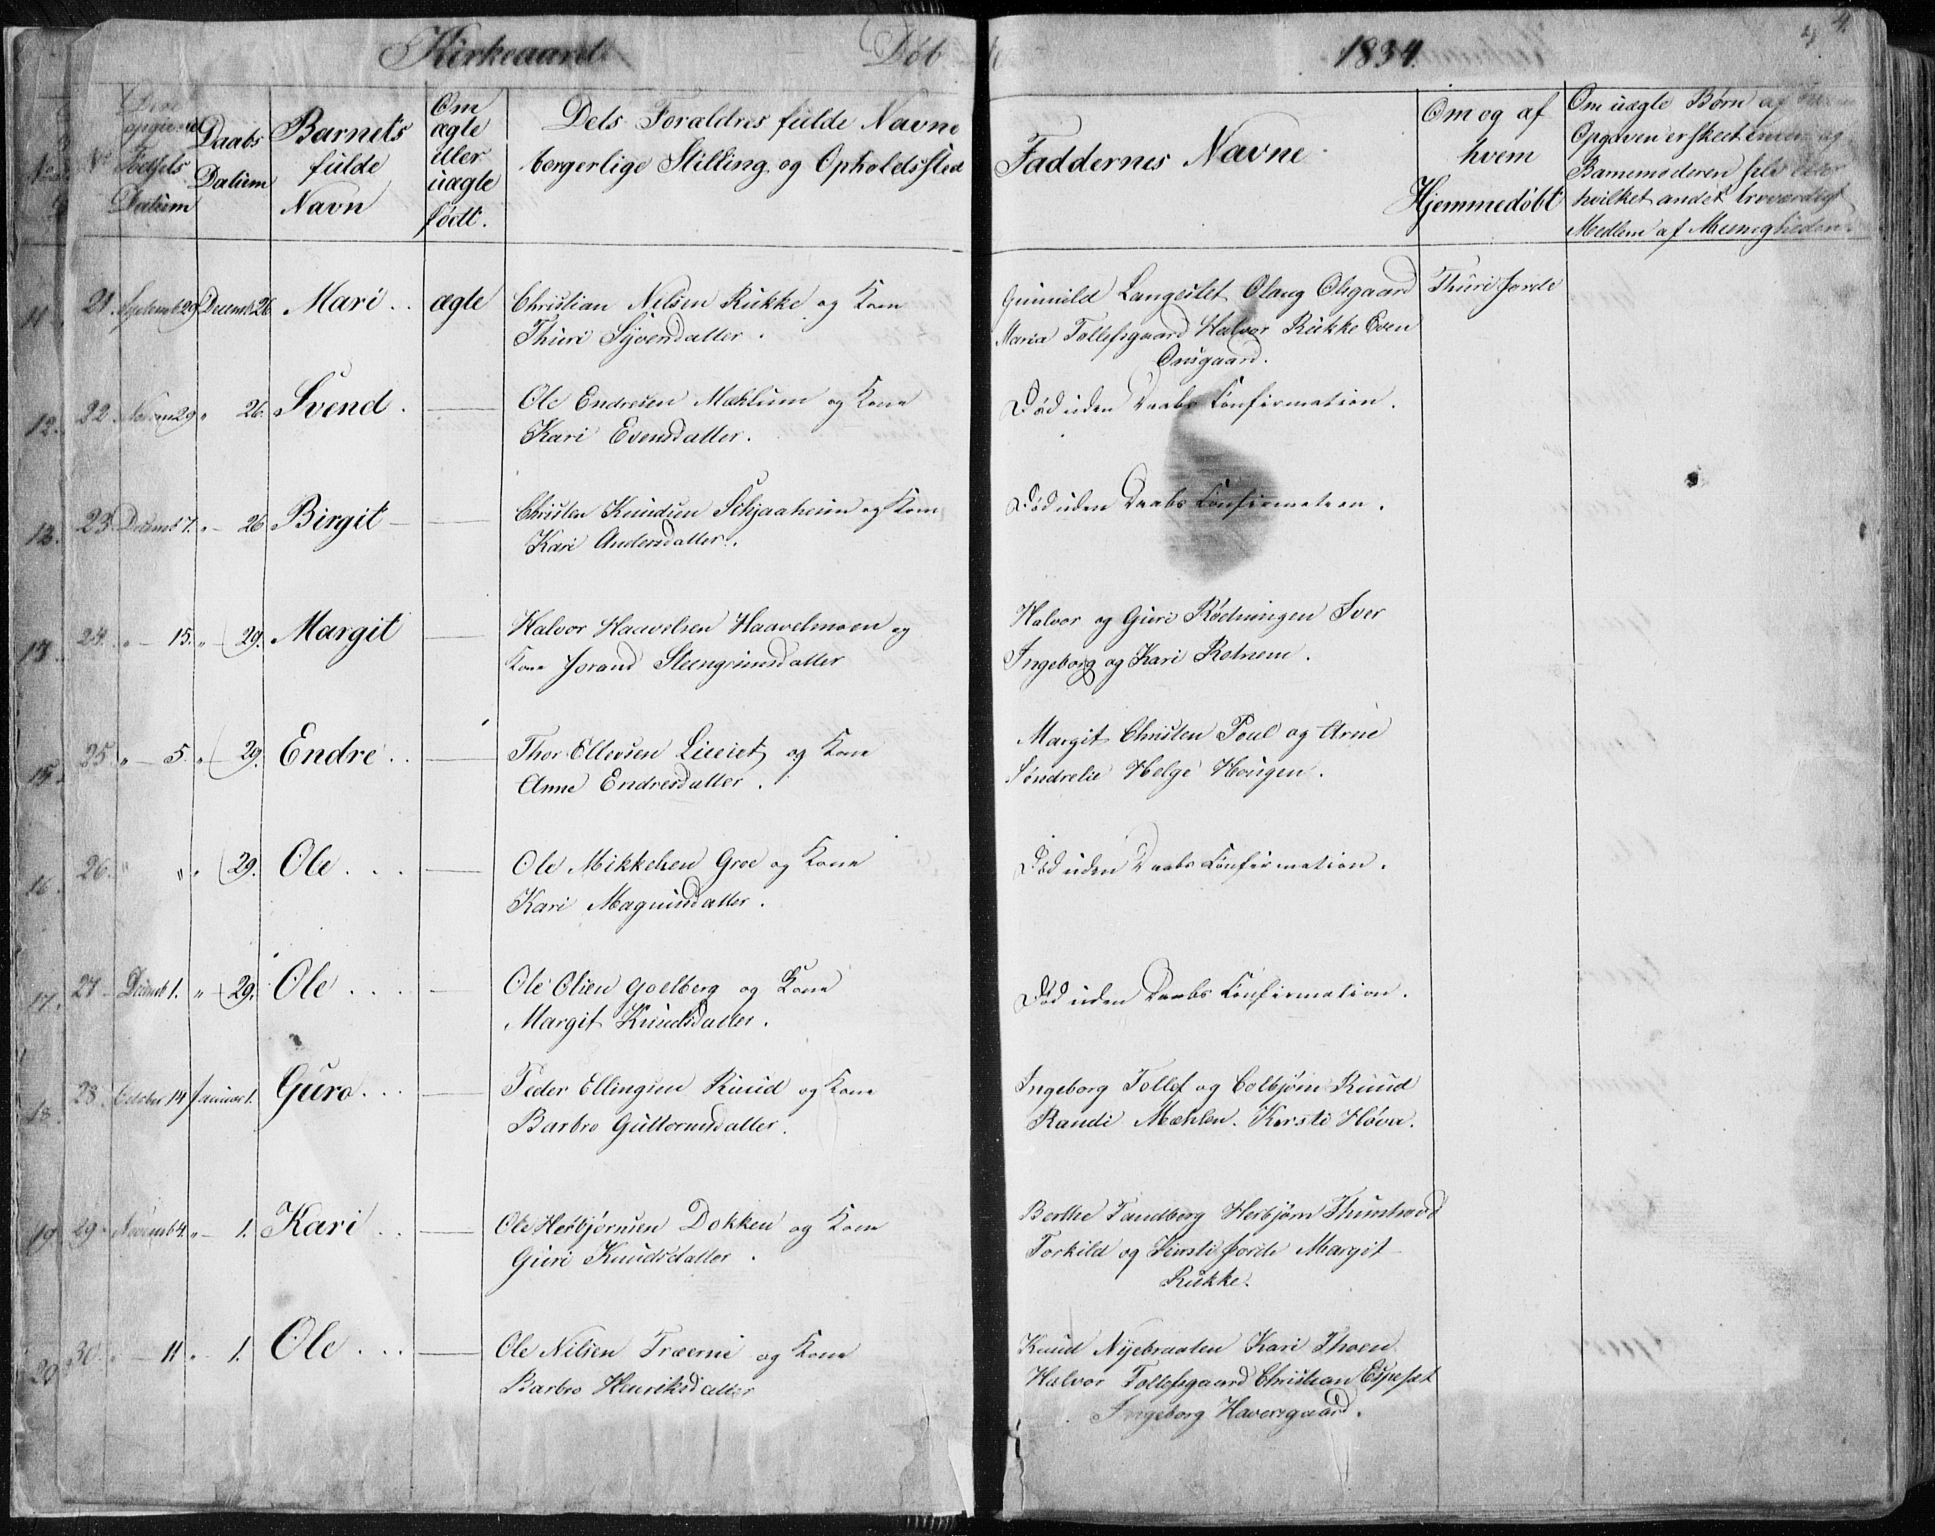 Kirkeaard Døb 1834. 4
No No Den opgivne Fødsels Datum Daabs Datum Barnets fulde Navn Om ægte eller uægte født. Dets Forældres fulde Navne borgerlige Stilling og Opholdssted Faddernes Navne Om og af hvem Hjemmedøbt Om uægte Børn
Opgaven er skeet
Barnemoderen selv eller
hvilket andet troværdigt
Medlem af Menigheden.
11 21. Septemb 29 Decemb 26. Mari . . ægte Christian Nilsen Rukke og Kone Gunnild Langeslet Olaug Olsgaard Thuri Jorde
Thuri Syvendatter . Maria Tollefsgaard Halvor Rukke Even
Onsgaard.
12. 22. Novem 29 " 26. Svend . — Ole Endresen Mæhlum og Kone Død uden Daabs Confirmation .
Kari Evensdatter.
12. 23. Decemb 7. " - 26 Birgit — Christen Knudsen Schjaaheim og Kone Død uden Daabs Confirmation .
Kari Andersdatter.
13. 24. " - 15. " - 29. Margit — Halvor Haavelsen Haavelmoen og Halvor og Guri Rødningen Iver
Kone Jorand Steengrimsdatter Ingeborg og Kari Rotnem .
15. 25. " - 5. " - 29. Endre . . — Thor Ellevsen Lieiet og Kone Margit Christen Poul og Arne
Anne Endresdatter . Søndrelie Helge Hougen .
16. 26. " " " 29. Ole . . . — Ole Mikkelsen Groe og Kone Død uden Daabs Confirmation .
Kari Magnusdatter .
17. 27 - Decemb 1. " - 29. Ole . . . — Ole Olsen Goelberg og Kone Død uden Daabs Confirmation .
Margit Knudsdatter .
18. 28. October 14 Januar 1. Guro . . . — Peder Ellingsen Ruud og Kone Ingeborg Tollef og Colbjørn Ruud
Barbro Guttormsdatter . Randi Mæhlen. Kersti Høva .
19 29. Novemb 4. " - 1. Kari . . — Ole Herbjørnsen Dokken og Kone Berthe Sandberg Herbjørn Thunhovd
Guri Knudsdatter . Torkild og Kirsti Jorde Margit
Rukke.
20 30. " - 11 " - 1. Ole . . . — Ole Nilsen Træerne og Kone Knud Nyebraaten Kari Thoen
Barbro Henriksdatter Halvor Tollefsgaard Christian Espeset
Ingeborg Haversgaard .